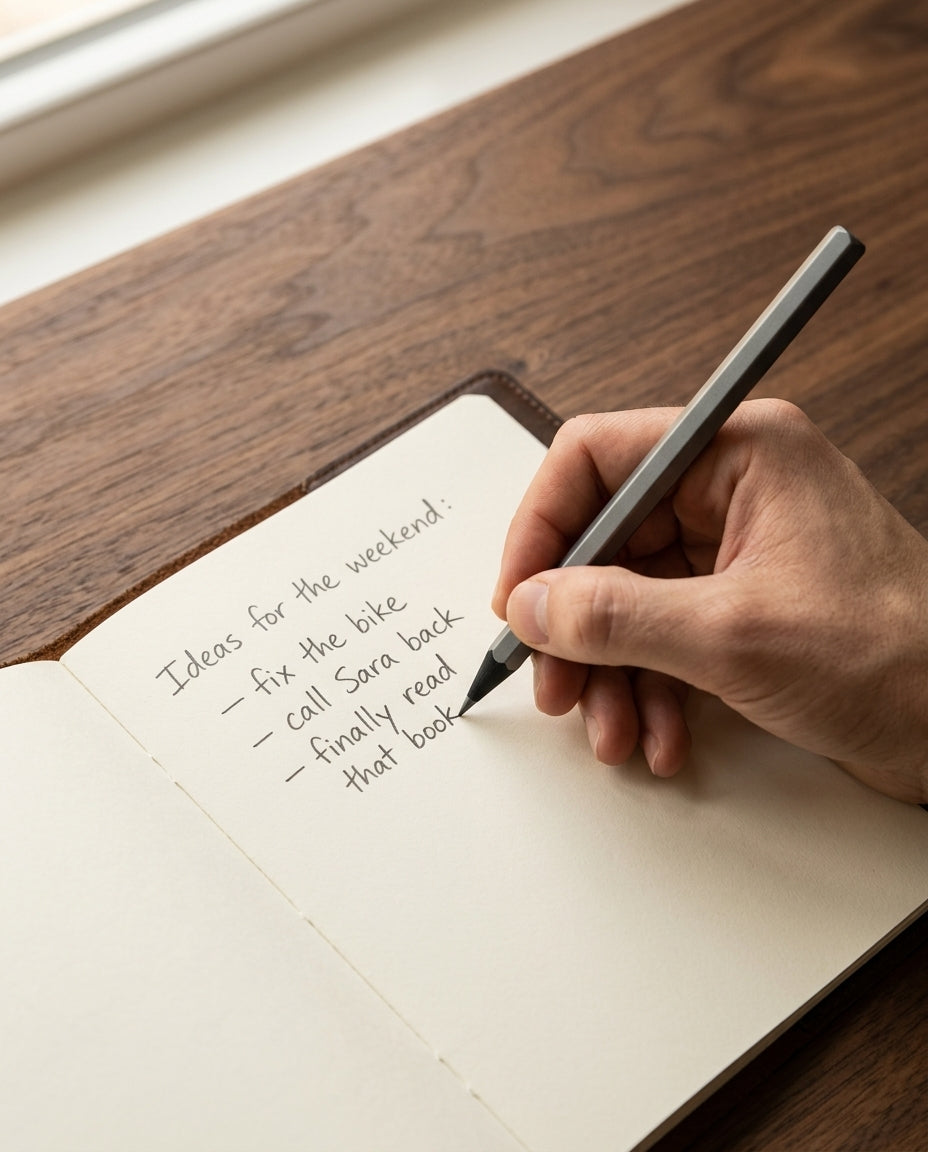 Ideas for the weekend:
– fix the bike
– call Sara back
– finally read
that book